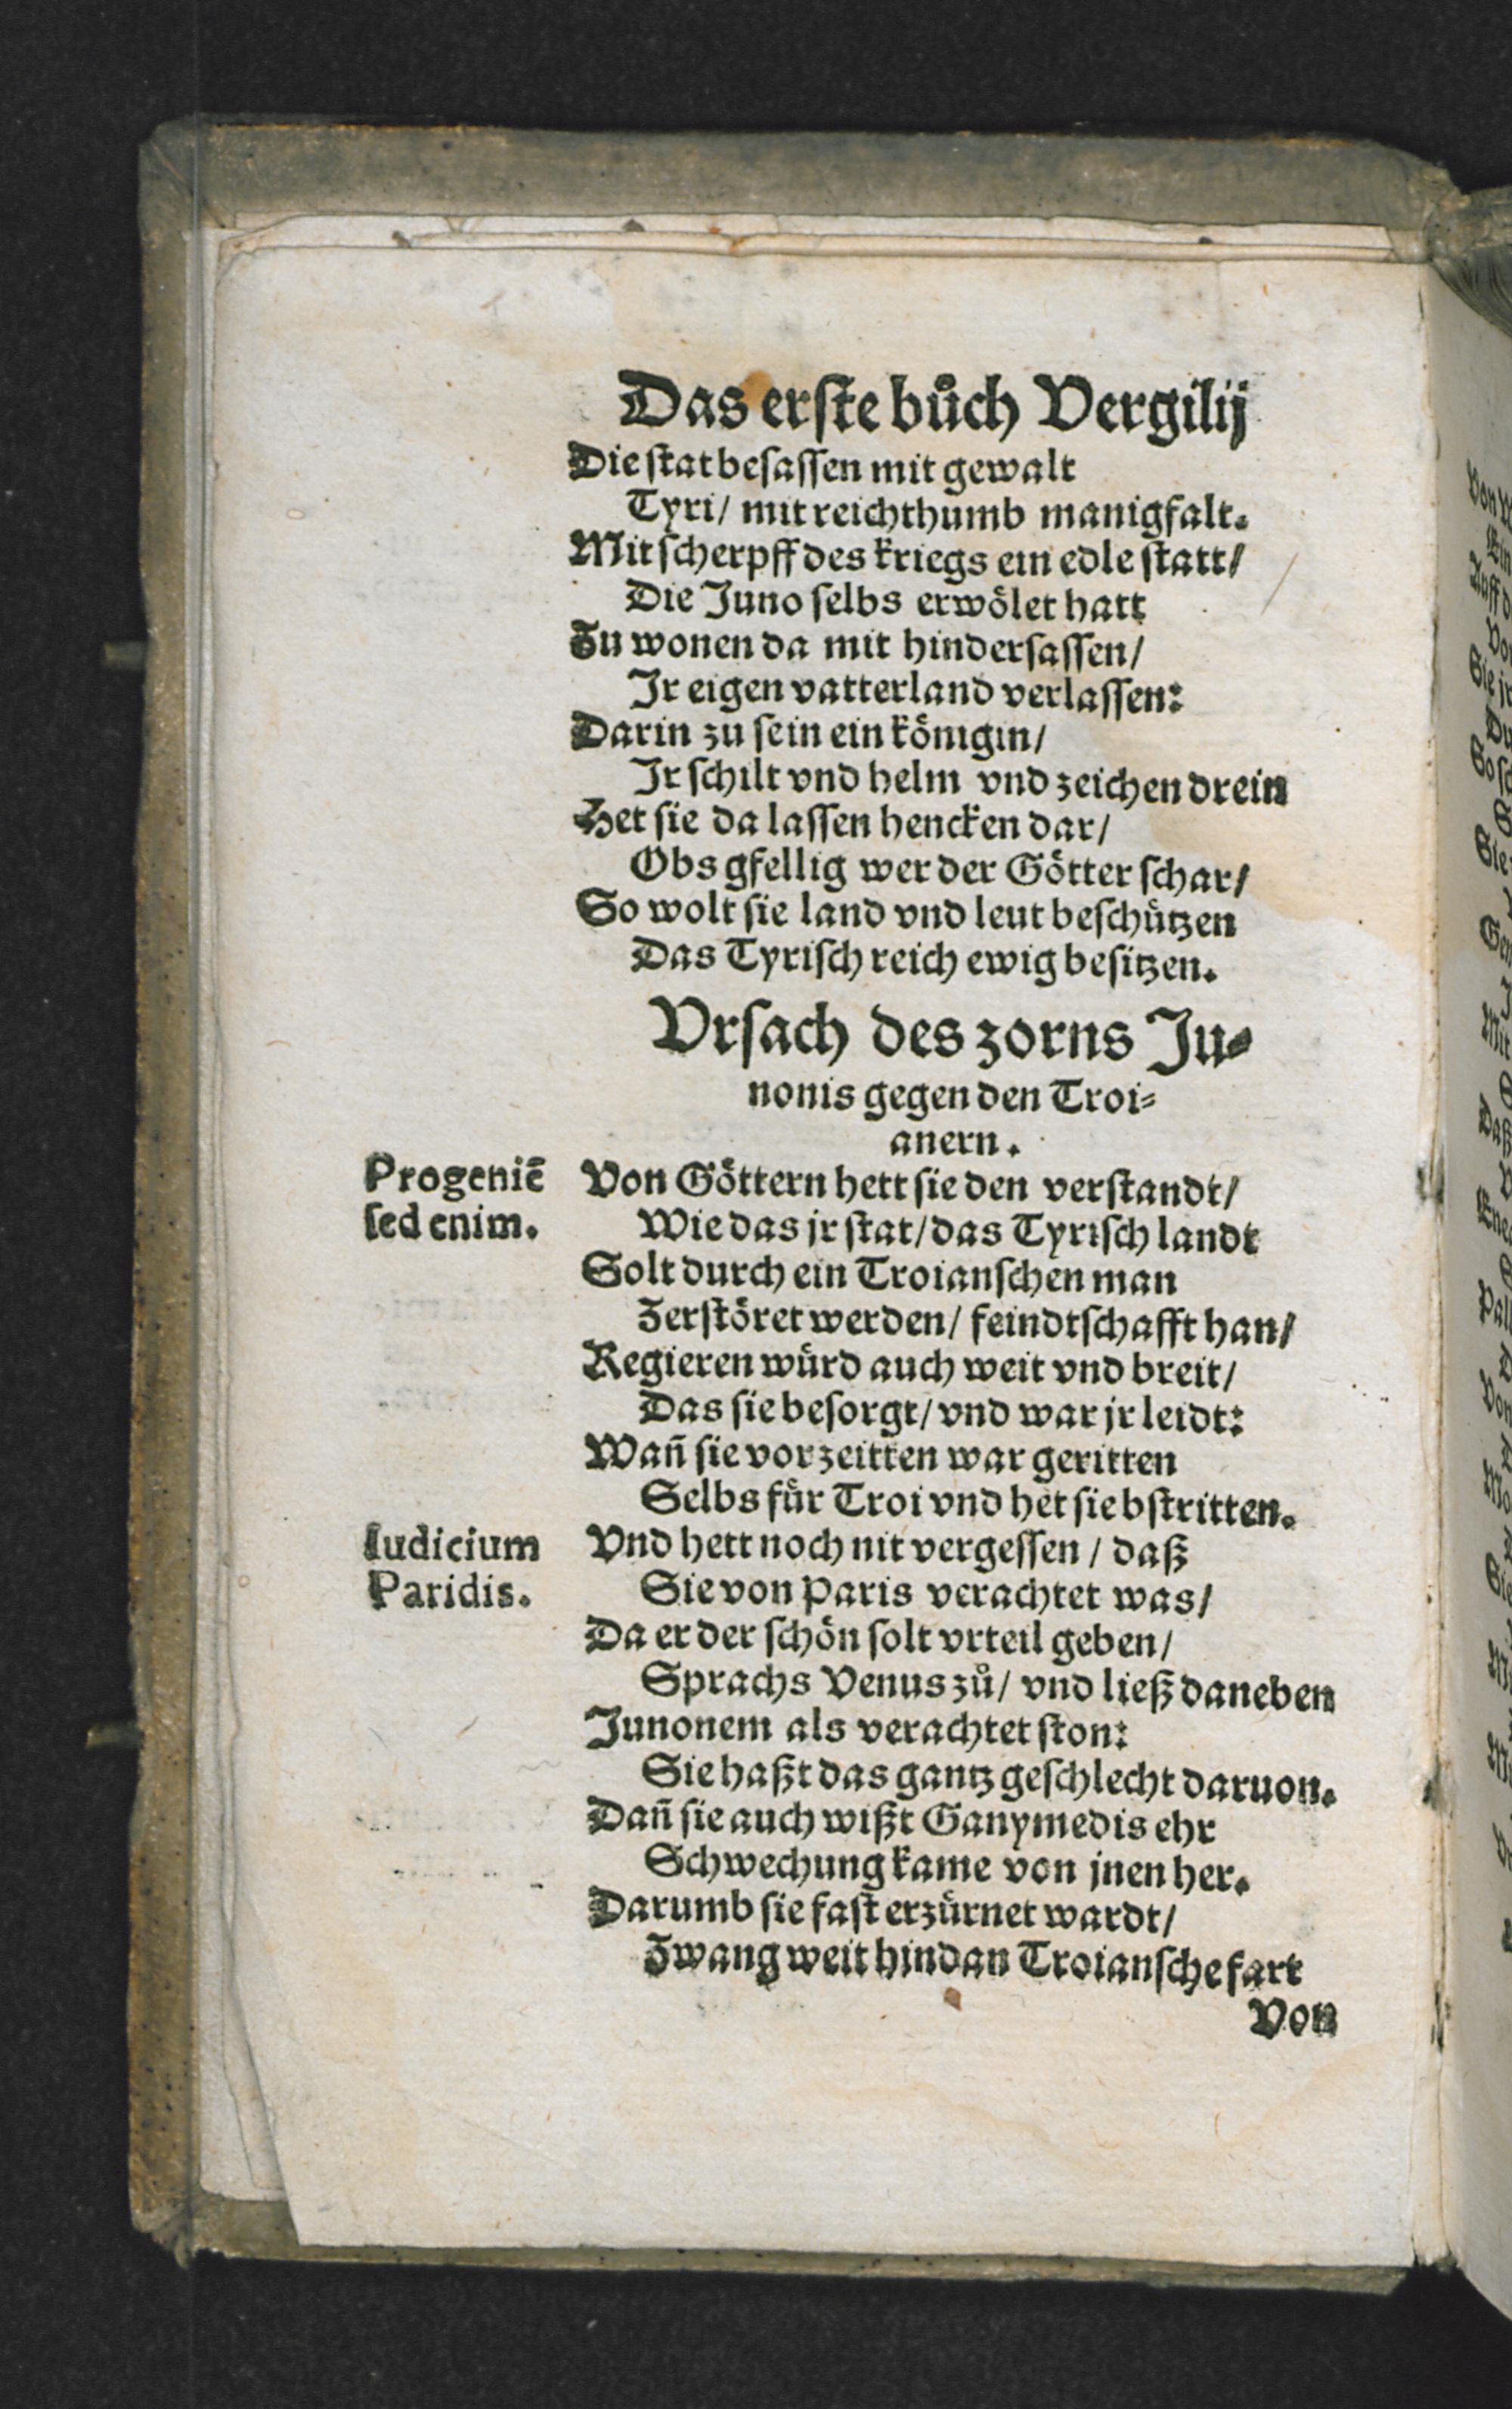 Das erſte bůch Vergilij
Die ſtat beſaſſen mit gewalt
Tyri/ mit reichthumb manigfalt.
Mit ſcherpff des kriegs ein edle ſtatt/
Die Juno ſelbs erwoͤlet hatt
Zu wonen da mit hinderſaſſen/
Jr eigen vatterland verlaſſen:
Darin zu ſein ein koͤnigin/
Jr ſchilt vnd helm vnd zeichen drein
Het ſie da laſſen hencken dar/
Obs gfellig wer der Goͤtter ſchar/
So wolt ſie land vnd leut beſchuͤtzen
Das Tyriſch reich ewig beſitzen.
Vrſach des zorns Ju⸗
nonis gegen den Troi⸗
anern.
Progeniē
ſed enim.
Von Goͤttern hett ſie den verſtandt/
Wie das jr ſtat/ das Tyriſch landt
Solt durch ein Troianſchen man
Zerſtoͤret werden/ feindtſchafft han/
Regieren wuͤrd auch weit vnd breit/
Das ſie beſorgt/ vnd war jr leidt:
Wañ ſie vor zeitten war geritten
Selbs fuͤr Troi vnd het ſie bſtritten.
Iudicium
Paridis.
Vnd hett noch nit vergeſſen / daß
Sie von Paris verachtet was/
Da er der ſchoͤn ſolt vrteil geben/
Sprachs Venus zů/ vnd ließ daneben
Junonem als verachtet ſton:
Sie haßt das gantz geſchlecht daruon.
Dañ ſie auch wißt Ganymedis ehr
Schwechung kame von jnen her.
Darumb ſie faſt erzuͤrnet wardt/
Zwang weit hindan Troianſche fart
Von